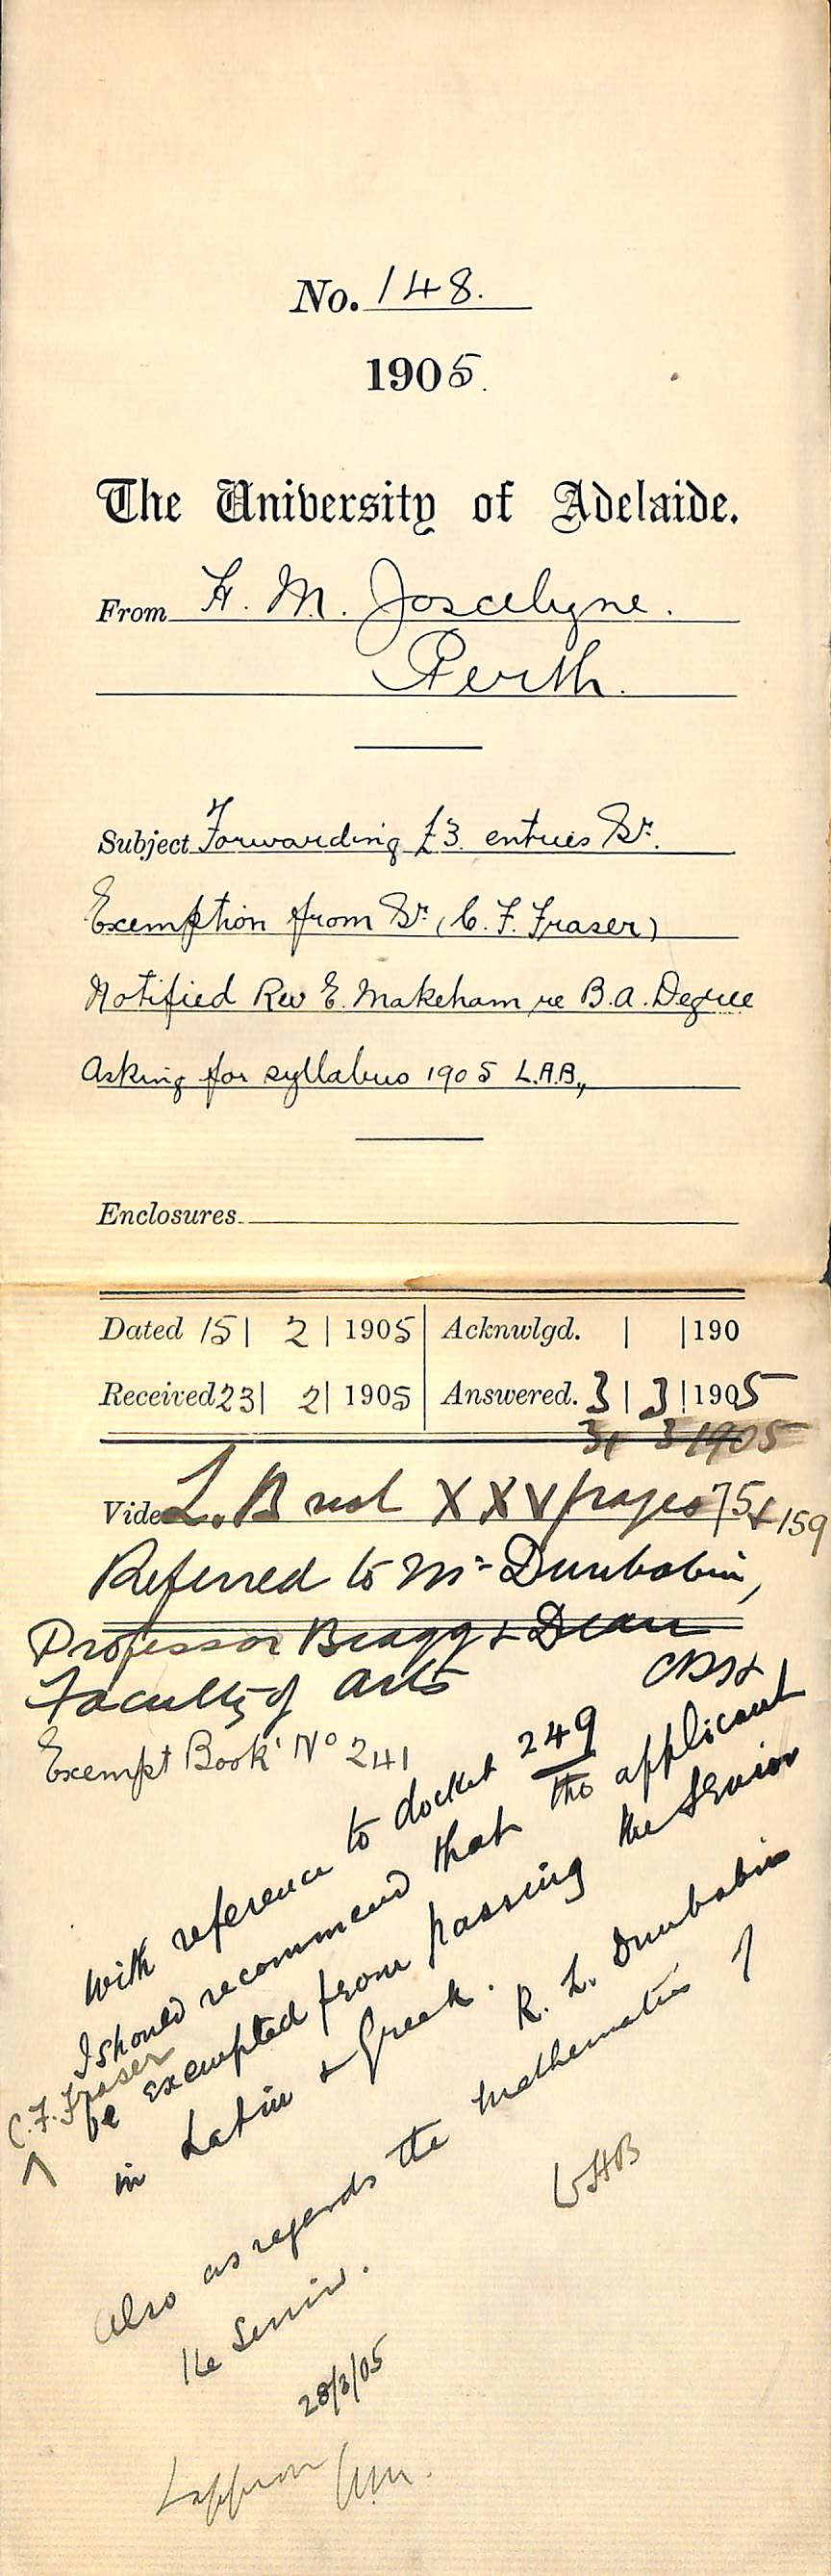 No. 148.
1905.
The University of Adelaide.
From H. M. Joscelyne.
Perth.
Subject Forwarding £3 entries Sr.
Exemption from Sr. (C. F. Fraser)
Notified Rev E. Makeham re B.A. Degree
Asking for syllabus 1905 L.A.B.,
Enclosures.
Dated 15 | 2 | 1905 | Acknwlgd. | | 190
Received 23 | 2 | 1905 | Answered. 3 | 3 | 1905
31 3 1905
Vide L.B vol XXV pages 75 & 159
Referred to Mr Dunbabin,
Professor Bragg & Dean
Faculty of Arts
Exempt Book No 241
With reference to docket 249
I should recommend that the applicant
C. F. Fraser
be exempted from passing the Senior
in Latin & Greek.
R. L. Dunbabin
Also as regards the mathematics of
the Senior.
WHB
28/3/05
I approve